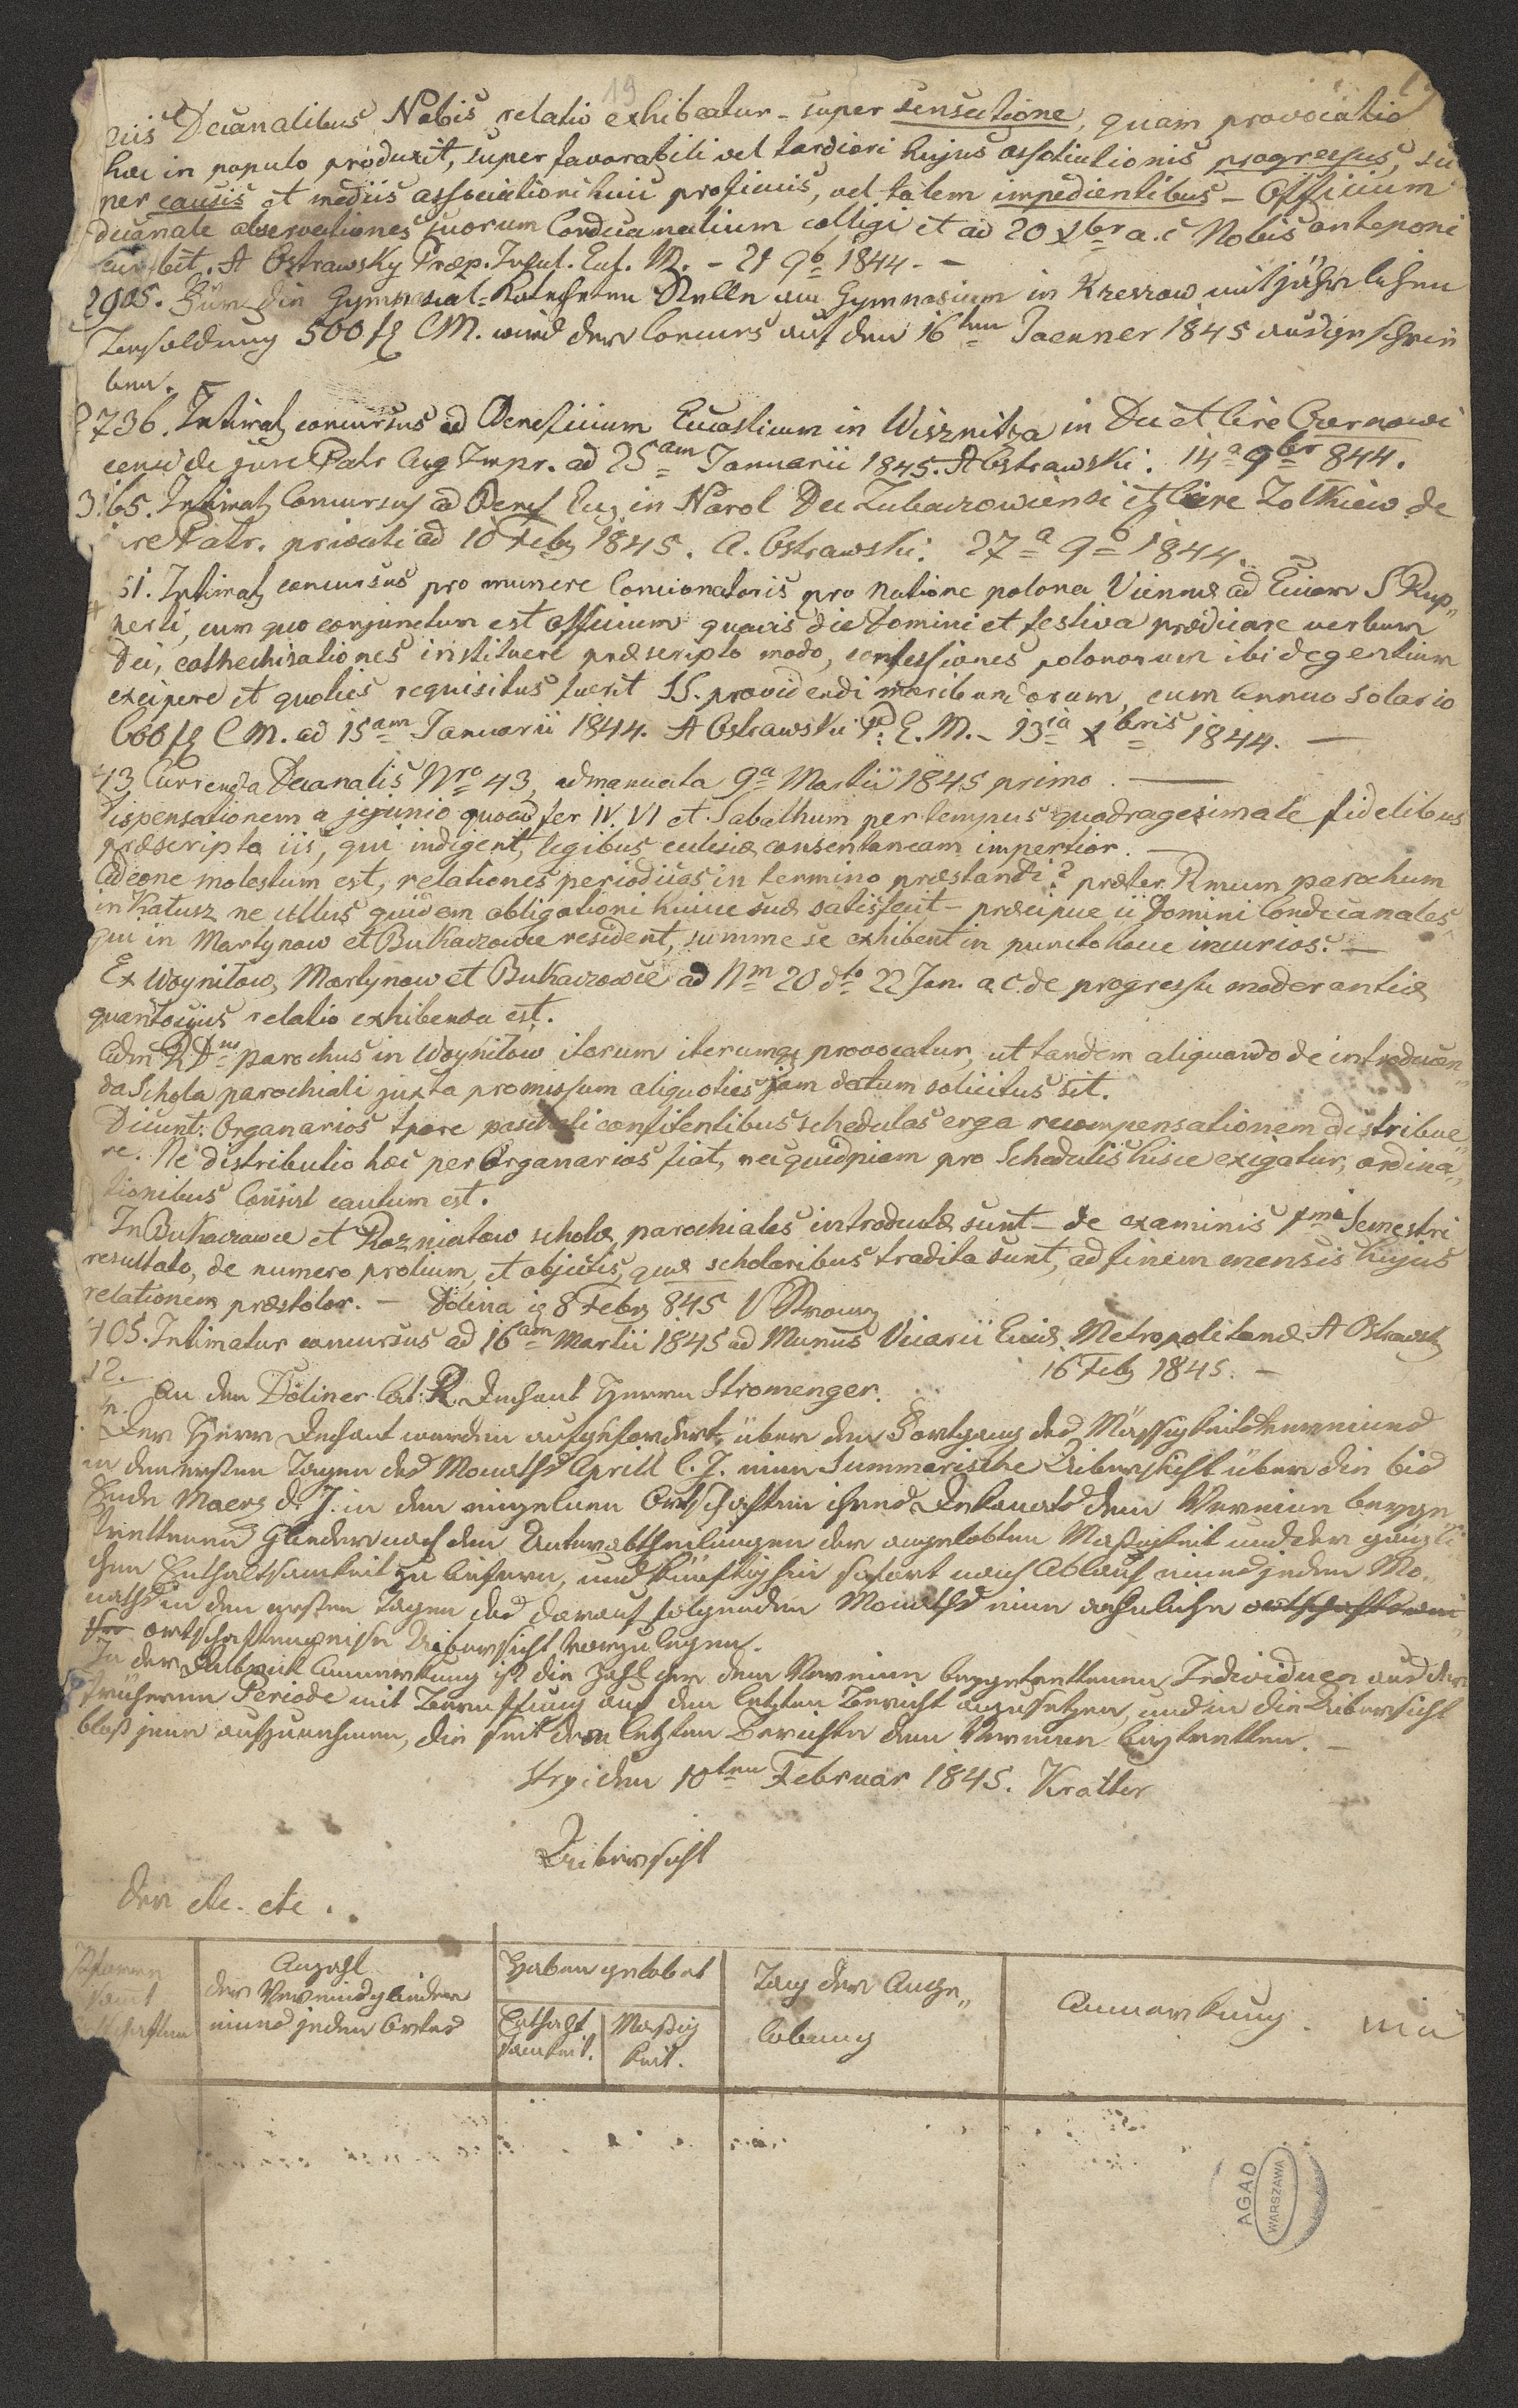 19
ciis Decanalibus Nobis relatio exhibeatur – super sensatione, quam provocatio
hæc in populo produxit, super favorabili vel tardiori hujus associationis progressus, su
per causis et mediis associationi huic proficuis, vel talem impedientibus – Officium
decanale observationes suorum Condecanalium colligi et ad 20 Xbr a. c Nobis anteponi
curabit. A Ostrawsky Præp. Inful. Eccl. M. – 21 9b 1844. –
2905. Für die Gymnasial-Katecheten Stelle am Gymnasium in Rzeszow mit jährlichen
Besoldung 500 fl CM. wird der Concurs auf den 16ten Jaenner 1845 ausgeschrie
ben. –
2736. Intimat concursus ad Beneficium Eccasticum in Wisznitza in Dec et Circ Czernowi
censi de jure Patr Aug Impr. ad 25am Januarii 1845. A Ostrawski. 14a 9br 844.
3165. Intimat Concursus ad Benef Ecc in Narol Dec Lubaczowiensi et Circ Zolkiew de
jure Patr. privati ad 10 Feb 1845. A. Ostrawski. 27a 9b 1844. –
51. Intimat concursus pro munere Concionatoris pro natione polona Viennæ ad Eccam S Rup„
perti, cum quo conjunctum est officium quavis die Domini et festiva prædicare verbum
Dei, cathechisationes instituere præscripto modo, confessiones polonorum ibi degentium
excipere et quoties requisitus fuerit SS. providendi moribundorum, cum annuo salario
600 fl CM. ad 15am Januarii 1844. A Ostrawski P. E. M. – 13ia Xbris 1844. –
13 Currenda Decanalis Nro 43, admanuata 9a Martii 1845 primo. –
Dispensationem a jejunio quoad fer IV. VI et Sabathum per tempus quadragesimale fidelibus
præscripta iis, qui indigent, legibus eclesiæ consentaneam impertior. –
Adeone molestum est, relationes periodicas in termino præstandi? præter Rmum parochum
in Kalusz ne ullus quidem obligationi huicce suæ satisfecit – præcipue ii Domini Condecanales,
qui in Martynow et Bukaczowce resident, summe se exhibent in puncto hocce incurios. –
Ex Woynilow, Martynow et Bukaczowce ad Nm 20 dto 22 Jan. a c. de progressu moderantiæ
quantocyus relatio exhibenda est.
Adm R Dnus parochus in Woynilow iterum iterumq provocatur, ut tandem aliquando de introducen„
da Schola parochiali juxta promissum aliquoties jam datum solicitus sit.
Dicunt: Organarios tpore paschali confitentibus schedulas erga recompensationem distribue„
re. Ne distributio hæc per Organarios fiat, nec quidpiam pro Schedulis hisce exigatur, ordina„
tionibus Consist cautum est.
In Bukaczowce et Rozniatow scholæ parochiales introductæ sunt – de examinis 1mi Semestri
resultato, de numero prolium, et objectis, quæ scholaribus tradita sunt, ad finem mensis hujus
relationem præstolor. – Dolina 8 Feb 845 Strom
405. Intimatur concursus ad 16am Martii 1845 ad Munus Vicarii Eccæ Metropolitanæ A Ostrawsk
16 Feb 1845. –
12.
An den Doliner lat: R. Dechant Herrn Stromenger.
Der Herr Dechant werden aufgefordert, über den Fortgang des Mässigkeitsvereines
in den ersten Tagen des Monaths Aprill l. J. eine Summarische Uibersicht über die bis
Ende Maerz d. J. in den einzelnen Ortschaften ihres Dekanats dem Vereine beyge
trettenen Glieder nach den Unterabtheilungen der angelobten Maßigkeit und der gänzli„
chen Enthaltsamkeit zu liefern, und künftighin sofort nach Ablauf eines jeden Mo„
naths in den ersten Tagen des darauf folgenden Monaths eine aehnliche
ortschaftenweise Uibersicht vorzulegen.
In der Rubrick Anmerkung ist die Zahl der dem Vereine beygetrettenen Individuen aus der
früheren Periode mit Berufung auf den letzten Bericht anzusetzen, und in die Uibersicht
bloß jene aufzunehmen, die seit dem letzten Berichte dem Vereine beytretten. –
Stry den 10ten Februar 1845. Kratter
Uibersicht
Der etc. etc.
Pfarren samt Ortschaften
Anzahl der Vereinsglieder eines jeden Ortes
Haben gelobet
Enthaltsamkeit.
Maßigkeit.
Tag der Ange„lobung
Anmerkung.
AGAD
WARSZAWA